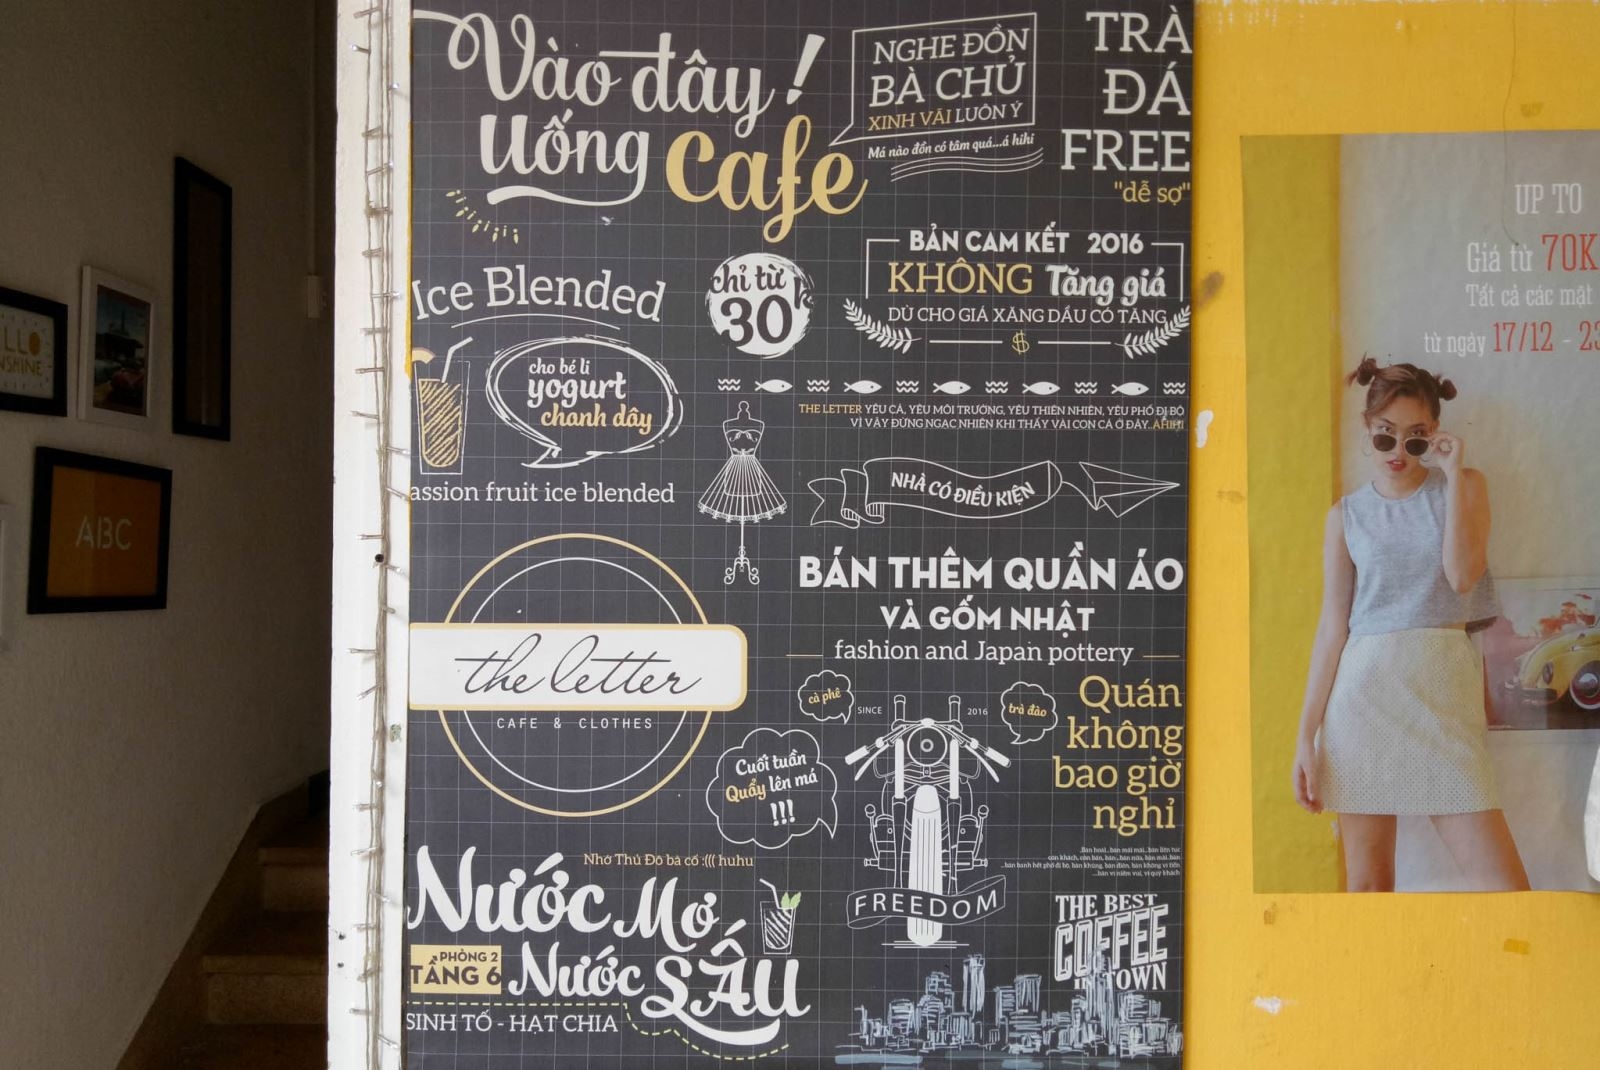 Vào đây!
Uống Cafe
NGHE ĐỒN
BÀ CHỦ
XINH VÃI LUÔN Ý
Má nào đồn có tâm quá...á hihi
TRÀ
ĐÁ
FREE
"dễ sợ"
BẢN CAM KẾT 2016
KHÔNG Tăng giá
DÙ CHO GIÁ XĂNG DẦU CÓ TĂNG
$
Ice Blended
chỉ từ
30k
cho bé li
yogurt
chanh dây
assion fruit ice blended
THE LETTER YÊU CÁ, YÊU MÔI TRƯỜNG, YÊU THIÊN NHIÊN, YÊU PHỐ ĐI BỘ
VÌ VẬY ĐỪNG NGẠC NHIÊN KHI THẤY VÀI CON CÁ Ở ĐÂY..AHIHI
NHÀ CÓ ĐIỀU KIỆN
BÁN THÊM QUẦN ÁO
VÀ GỐM NHẬT
fashion and Japan pottery
the letter
CAFE & CLOTHES
cà phê
SINCE 2016
trà đào
Quán
không
bao giờ
nghỉ
Cuối tuần
Quẩy lên má
!!!
FREEDOM
Nhớ Thủ Đô bà cố :((( huhu
Nước Mơ
PHÒNG 2
TẦNG 6
Nước SẤU
SINH TỐ - HẠT CHIA
THE BEST
COFFEE
IN TOWN
UP TO
Giá từ 70K
Tất cả các mặt
từ ngày 17/12 - 23
LLO
NSHINE
ABC